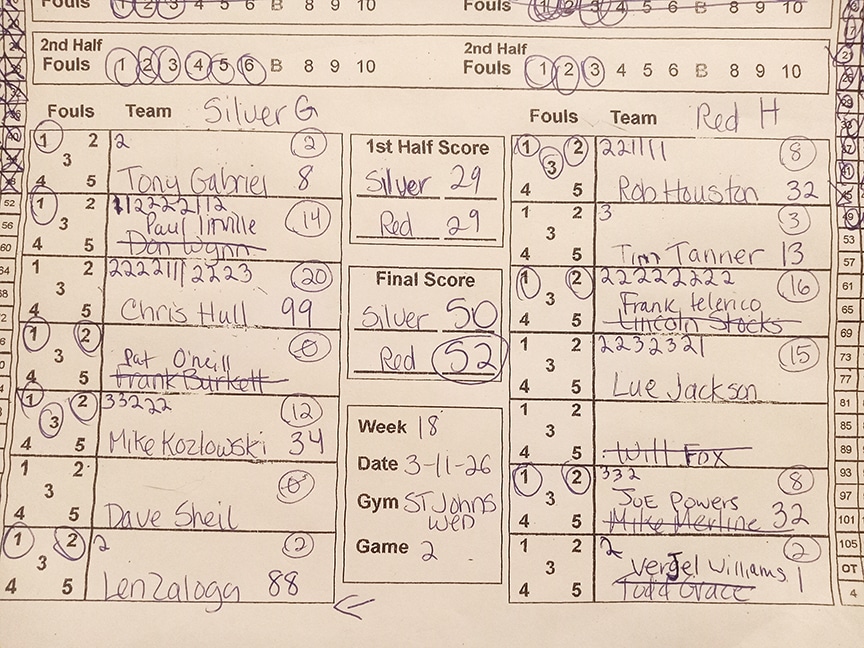 Fouls 1 2 3 4 5 6 B 8 9 10
Fouls 1 2 3 4 5 6 B 8 9 10
2nd Half
Fouls 1 2 3 4 5 6 B 8 9 10
2nd Half
Fouls 1 2 3 4 5 6 B 8 9 10
Fouls Team Silver G
1 2 3 4 5
2 2
Tony Gabriel 8
1 2 3 4 5
14
Paul Linville
Don Wynn
1 2 3 4 5
22221112223 20
Chris Hull 99
1 2 3 4 5
0
Pat O'neill
Frank Burkett
1 2 3 4 5
33222 12
Mike Kozlowski 34
1 2 3 4 5
0
Dave Sheil
1 2 3 4 5
2 2
Len Zaloga 88
1st Half Score
Silver 29
Red 29
Final Score
Silver 50
Red 52
Week 18
Date 3-11-26
Gym ST Johns
wed
Game 2
Fouls Team Red H
1 2 3 4 5
221111 8
Rob Houston 32
1 2 3 4 5
3 3
Tim Tanner 13
1 2 3 4 5
22222222 16
Frank telerico
Lincoln Stocks
1 2 3 4 5
2232321 15
Lue Jackson
1 2 3 4 5
Will Fox
1 2 3 4 5
332 8
JOE Powers
Mike Merline 32
1 2 3 4 5
2 2
Verjel Williams 1
Todd Grace
52
56
60
64
53
57
61
65
69
73
77
81
85
89
93
97
101
105
OT
4